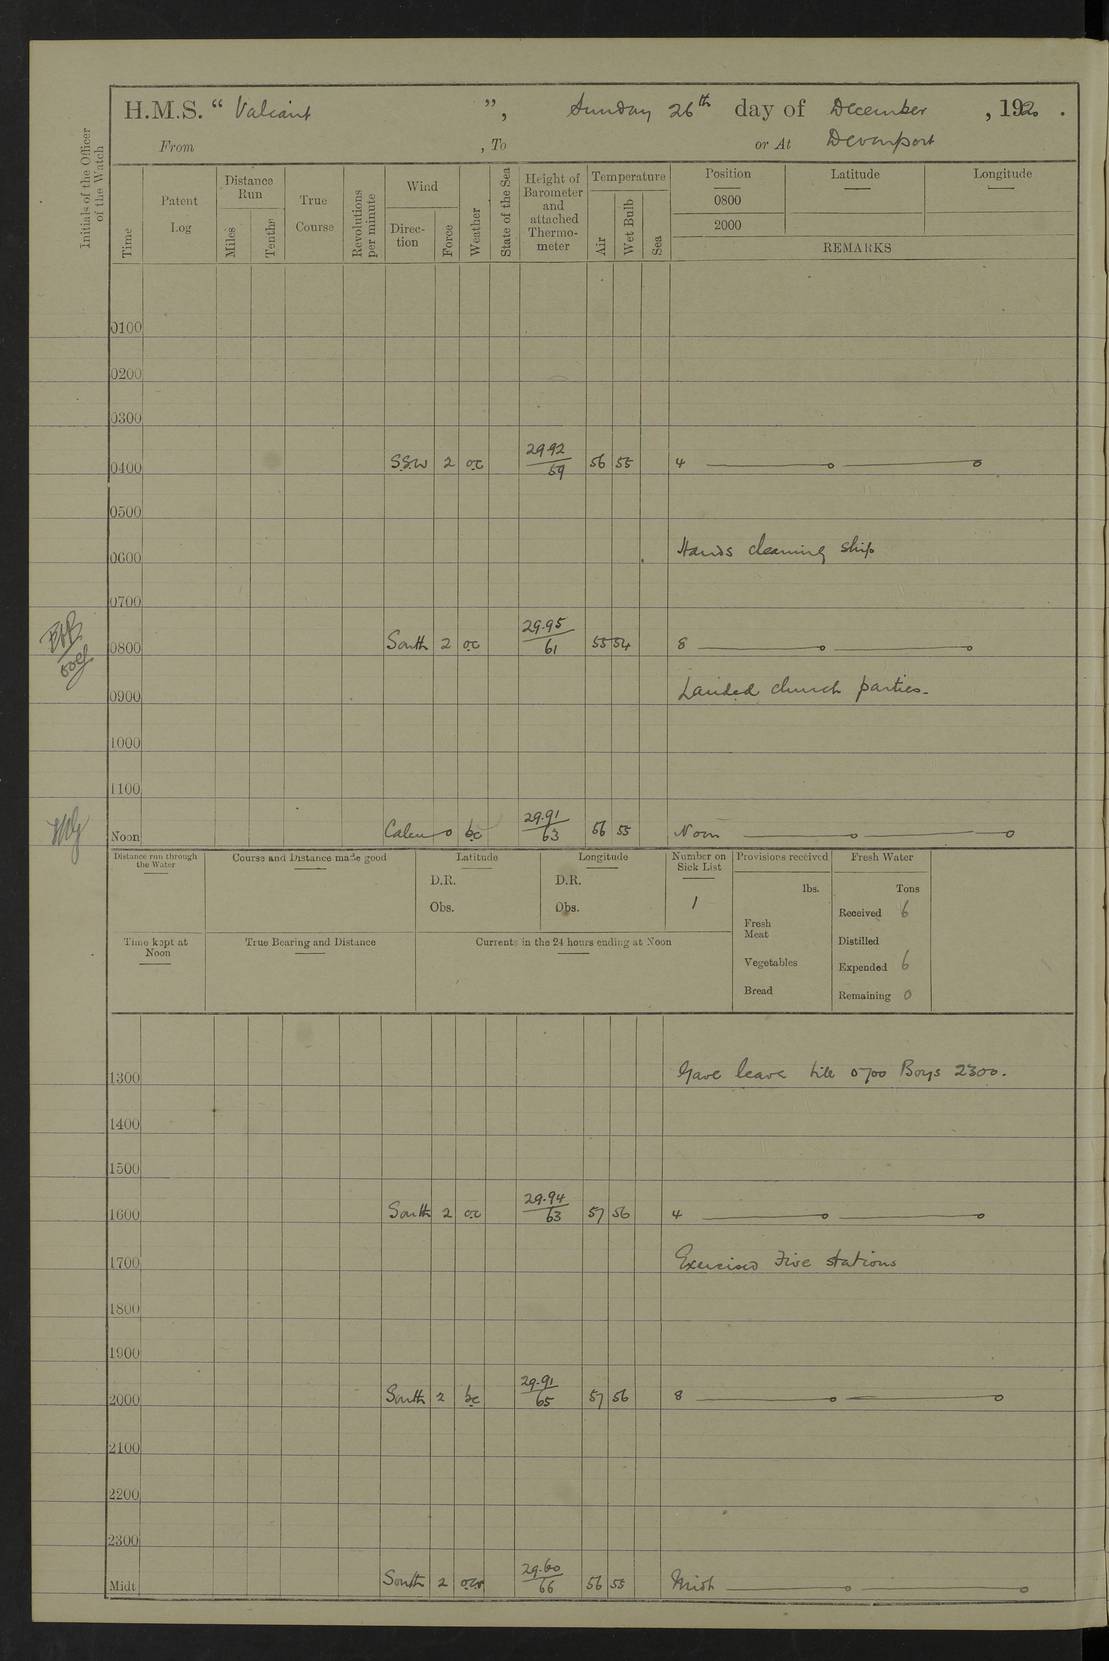 H.M.S. “ Valiant ”, Sunday 26th day of December , 1920 .
From , To or At Devonport
Initials of the Officer of the Watch
Time
Patent Log
Distance Run
Miles
Tenths
True Course
Revolutions per minute
Wind
Direction
Force
Weather
State of the Sea
Height of Barometer and attached Thermometer
Temperature
Air
Wet Bulb
Sea
Position Latitude Longitude
0800
2000
REMARKS
0100
0200
0300
0400 S.S.W 2 oc 29.92/59 56 55 4
0500
0600 Hands cleaning ship
0700
0800 South 2 oc 29.95/61 55 54 8
0900 Landed church parties.
1000
1100
Noon Calm 0 bc 29.91/63 56 55 Noon
Distance run through the Water
Course and Distance made good
Latitude
D.R.
Obs.
Longitude
D.R.
Obs.
Number on Sick List
1
Provisions received
lbs.
Fresh Meat
Vegetables
Bread
Fresh Water
Tons
Received 6
Distilled
Expended 6
Remaining 0
Time kept at Noon
True Bearing and Distance
Currents in the 24 hours ending at Noon
1300 Gave leave till 0700 Boys 2300.
1400
1500
1600 South 2 oc 29.94/63 57 56 4
1700 Exercised Fire stations
1800
1900
2000 South 2 bc 29.91/65 57 56 8
2100
2200
2300
Midt South 2 29.60/66 56 55 Midt